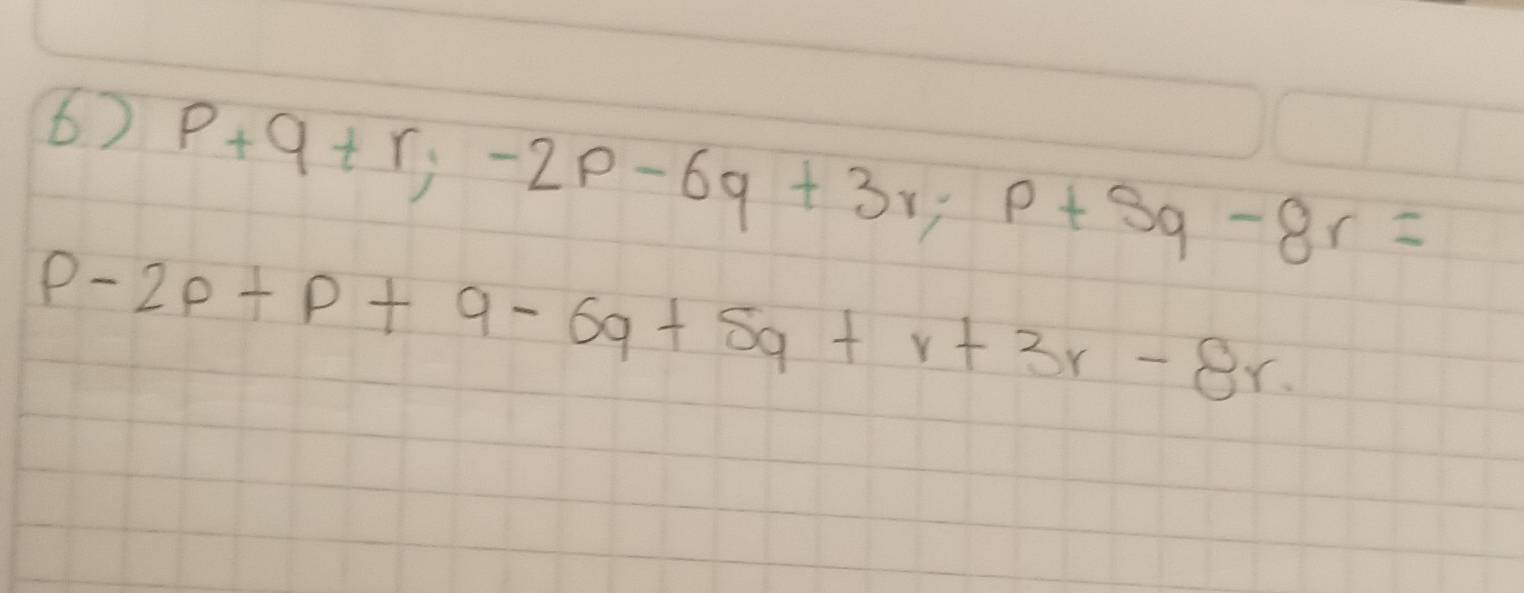 6) P + q + r; -2p - 6q + 3r; p + 5q - 8r =
p - 2p + p + q - 6q + 5q + r + 3r - 8r.